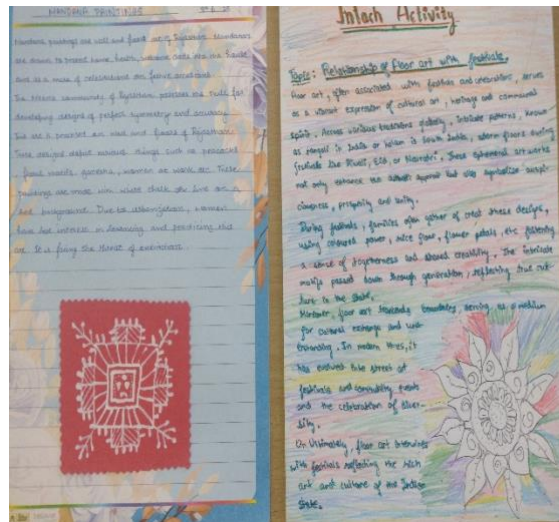 MANDANA PAINTINGS
Mandana paintings are wall and floor of Rajasthan. Mandanas
are drawn to protect home, hearth, welcome Gods into the house
and as a mark of celebrations on festive occasions.
The Meena community of Rajasthan possess the skill for
developing designs of perfect symmetry and accuracy.
This are a practiced on wall and floors of Rajasthan.
These designs depict various things such as peacocks
, floral motifs, ganesha, women at work etc. These
paintings are made with white chalk on
red background. Due to urbanization, women
have lost interest in learning and practicing this
art. It is facing the threat of extinction.
Intach Activity
Topic: Relationship of floor art with festivals.
floor art, often associated with festivals and celebrations, serves
as a vibrant expression of cultural art, heritage and communal
spirit. Across various traditions globally, intricate patterns, known
as rangoli in India or kolam in South India, adorn floors during
festivals like Diwali, Eid, or Navratri. These ephemeral art works
not only enhance the appeal but also symbolize auspi-
ciousness, prosperity and unity.
During festivals, families often gather of creat these designs,
using coloured power, rice flour, flower petals, etc fostering
a sense of togetherness and shared creability. The intricate
motifs passed down through generation, reflecting true cul-
ture in the state.
Moreover, floor art boundaries, serving as a medium
for cultural exchange and und-
erstanding. In modern times, it
has evolved into street art
festivals and community events
and the celebration of diver-
sity.
Ultimately, floor art intervines
with festivals reflecting the rich
art and culture of the Indian
State.